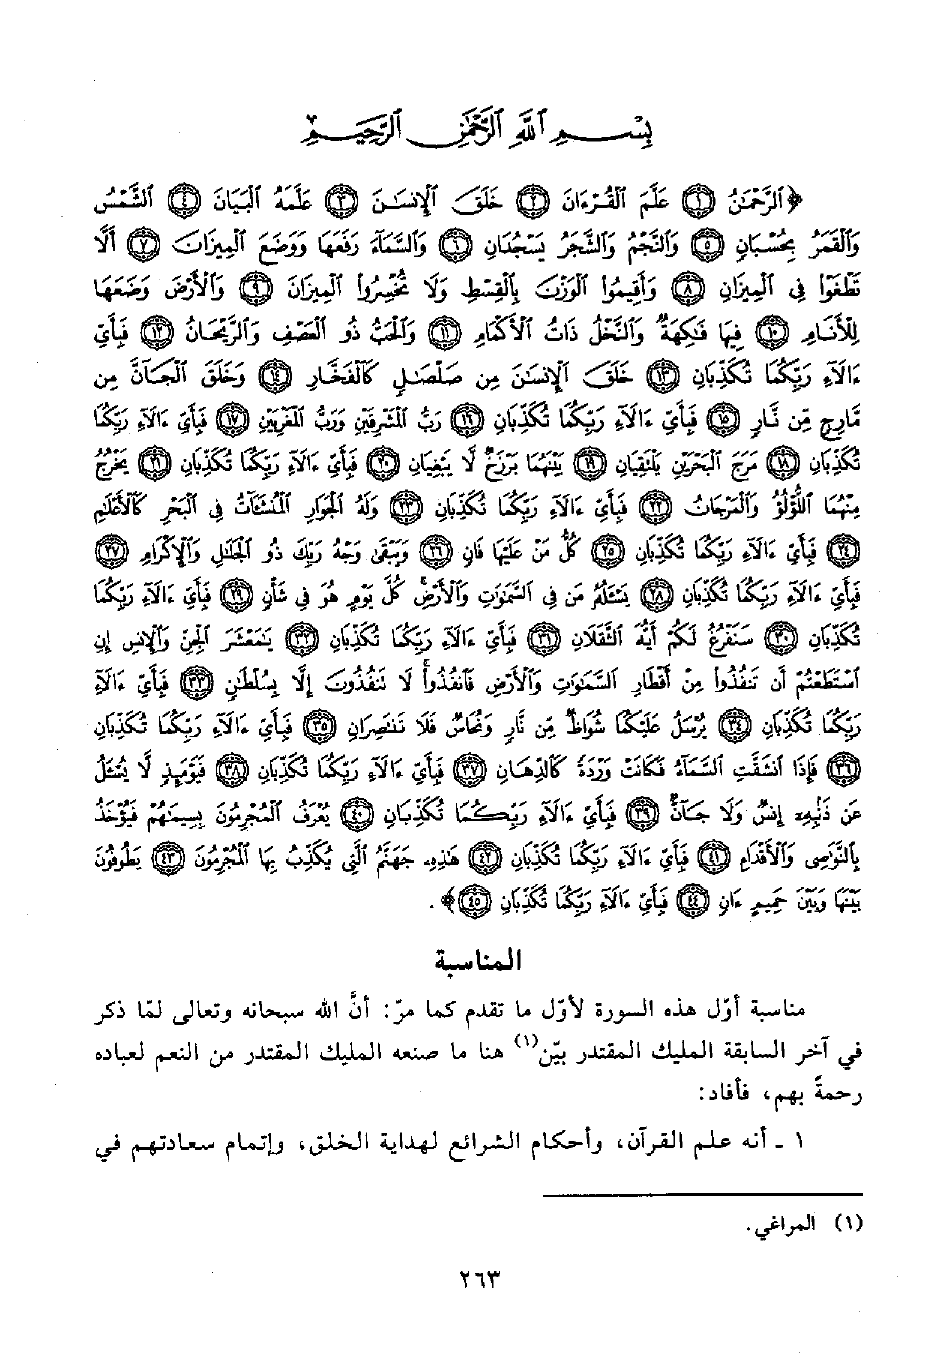 بِسْمِ اللَّهِ الرَّحْمَٰنِ الرَّحِيمِ
﴿الرَّحْمَٰنُ ١ عَلَّمَ الْقُرْءَانَ ٢ خَلَقَ الْإِنسَٰنَ ٣ عَلَّمَهُ الْبَيَانَ ٤ الشَّمْسُ
وَالْقَمَرُ بِحُسْبَانٍ ٥ وَالنَّجْمُ وَالشَّجَرُ يَسْجُدَانِ ٦ وَالسَّمَآءَ رَفَعَهَا وَوَضَعَ الْمِيزَانَ ٧ أَلَّا
تَطْغَوْا فِى الْمِيزَانِ ٨ وَأَقِيمُوا الْوَزْنَ بِالْقِسْطِ وَلَا تُخْسِرُوا الْمِيزَانَ ٩ وَالْأَرْضَ وَضَعَهَا
لِلْأَنَامِ ١٠ فِيهَا فَٰكِهَةٌ وَالنَّخْلُ ذَاتُ الْأَكْمَامِ ١١ وَالْحَبُّ ذُو الْعَصْفِ وَالرَّيْحَانُ ١٢ فَبِأَىِّ
ءَالَآءِ رَبِّكُمَا تُكَذِّبَانِ ١٣ خَلَقَ الْإِنسَٰنَ مِن صَلْصَٰلٍ كَالْفَخَّارِ ١٤ وَخَلَقَ الْجَآنَّ مِن
مَّارِجٍ مِّن نَّارٍ ١٥ فَبِأَىِّ ءَالَآءِ رَبِّكُمَا تُكَذِّبَانِ ١٦ رَبُّ الْمَشْرِقَيْنِ وَرَبُّ الْمَغْرِبَيْنِ ١٧ فَبِأَىِّ ءَالَآءِ رَبِّكُمَا
تُكَذِّبَانِ ١٨ مَرَجَ الْبَحْرَيْنِ يَلْتَقِيَانِ ١٩ بَيْنَهُمَا بَرْزَخٌ لَّا يَبْغِيَانِ ٢٠ فَبِأَىِّ ءَالَآءِ رَبِّكُمَا تُكَذِّبَانِ ٢١ يَخْرُجُ
مِنْهُمَا اللُّؤْلُؤُ وَالْمَرْجَانُ ٢٢ فَبِأَىِّ ءَالَآءِ رَبِّكُمَا تُكَذِّبَانِ ٢٣ وَلَهُ الْجَوَارِ الْمُنشَـَٔاتُ فِى الْبَحْرِ كَالْأَعْلَٰمِ
٢٤ فَبِأَىِّ ءَالَآءِ رَبِّكُمَا تُكَذِّبَانِ ٢٥ كُلُّ مَنْ عَلَيْهَا فَانٍ ٢٦ وَيَبْقَىٰ وَجْهُ رَبِّكَ ذُو الْجَلَٰلِ وَالْإِكْرَامِ ٢٧
فَبِأَىِّ ءَالَآءِ رَبِّكُمَا تُكَذِّبَانِ ٢٨ يَسْـَٔلُهُ مَن فِى السَّمَٰوَٰتِ وَالْأَرْضِ كُلَّ يَوْمٍ هُوَ فِى شَأْنٍ ٢٩ فَبِأَىِّ ءَالَآءِ رَبِّكُمَا
تُكَذِّبَانِ ٣٠ سَنَفْرُغُ لَكُمْ أَيُّهَ الثَّقَلَانِ ٣١ فَبِأَىِّ ءَالَآءِ رَبِّكُمَا تُكَذِّبَانِ ٣٢ يَٰمَعْشَرَ الْجِنِّ وَالْإِنسِ إِنِ
اسْتَطَعْتُمْ أَن تَنفُذُوا مِنْ أَقْطَارِ السَّمَٰوَٰتِ وَالْأَرْضِ فَانفُذُوا لَا تَنفُذُونَ إِلَّا بِسُلْطَٰنٍ ٣٣ فَبِأَىِّ ءَالَآءِ
رَبِّكُمَا تُكَذِّبَانِ ٣٤ يُرْسَلُ عَلَيْكُمَا شُوَاظٌ مِّن نَّارٍ وَنُحَاسٌ فَلَا تَنتَصِرَانِ ٣٥ فَبِأَىِّ ءَالَآءِ رَبِّكُمَا تُكَذِّبَانِ
٣٦ فَإِذَا انشَقَّتِ السَّمَآءُ فَكَانَتْ وَرْدَةً كَالدِّهَانِ ٣٧ فَبِأَىِّ ءَالَآءِ رَبِّكُمَا تُكَذِّبَانِ ٣٨ فَيَوْمَئِذٍ لَّا يُسْـَٔلُ
عَن ذَنۢبِهِ إِنسٌ وَلَا جَآنٌّ ٣٩ فَبِأَىِّ ءَالَآءِ رَبِّكُمَا تُكَذِّبَانِ ٤٠ يُعْرَفُ الْمُجْرِمُونَ بِسِيمَٰهُمْ فَيُؤْخَذُ
بِالنَّوَٰصِى وَالْأَقْدَامِ ٤١ فَبِأَىِّ ءَالَآءِ رَبِّكُمَا تُكَذِّبَانِ ٤٢ هَٰذِهِ جَهَنَّمُ الَّتِى يُكَذِّبُ بِهَا الْمُجْرِمُونَ ٤٣ يَطُوفُونَ
بَيْنَهَا وَبَيْنَ حَمِيمٍ ءَانٍ ٤٤ فَبِأَىِّ ءَالَآءِ رَبِّكُمَا تُكَذِّبَانِ ٤٥﴾.
المناسبة
مناسبة أوّل هذه السورة لأوّل ما تقدم كما مرّ: أنَّ الله سبحانه وتعالى لمّا ذكر
في آخر السابقة المليك المقتدر بيّن(١) هنا ما صنعه المليك المقتدر من النعم لعباده
رحمةً بهم، فأفاد:
١ - أنه علم القرآن، وأحكام الشرائع لهداية الخلق، وإتمام سعادتهم في
(١) المراغي.
٢٦٣